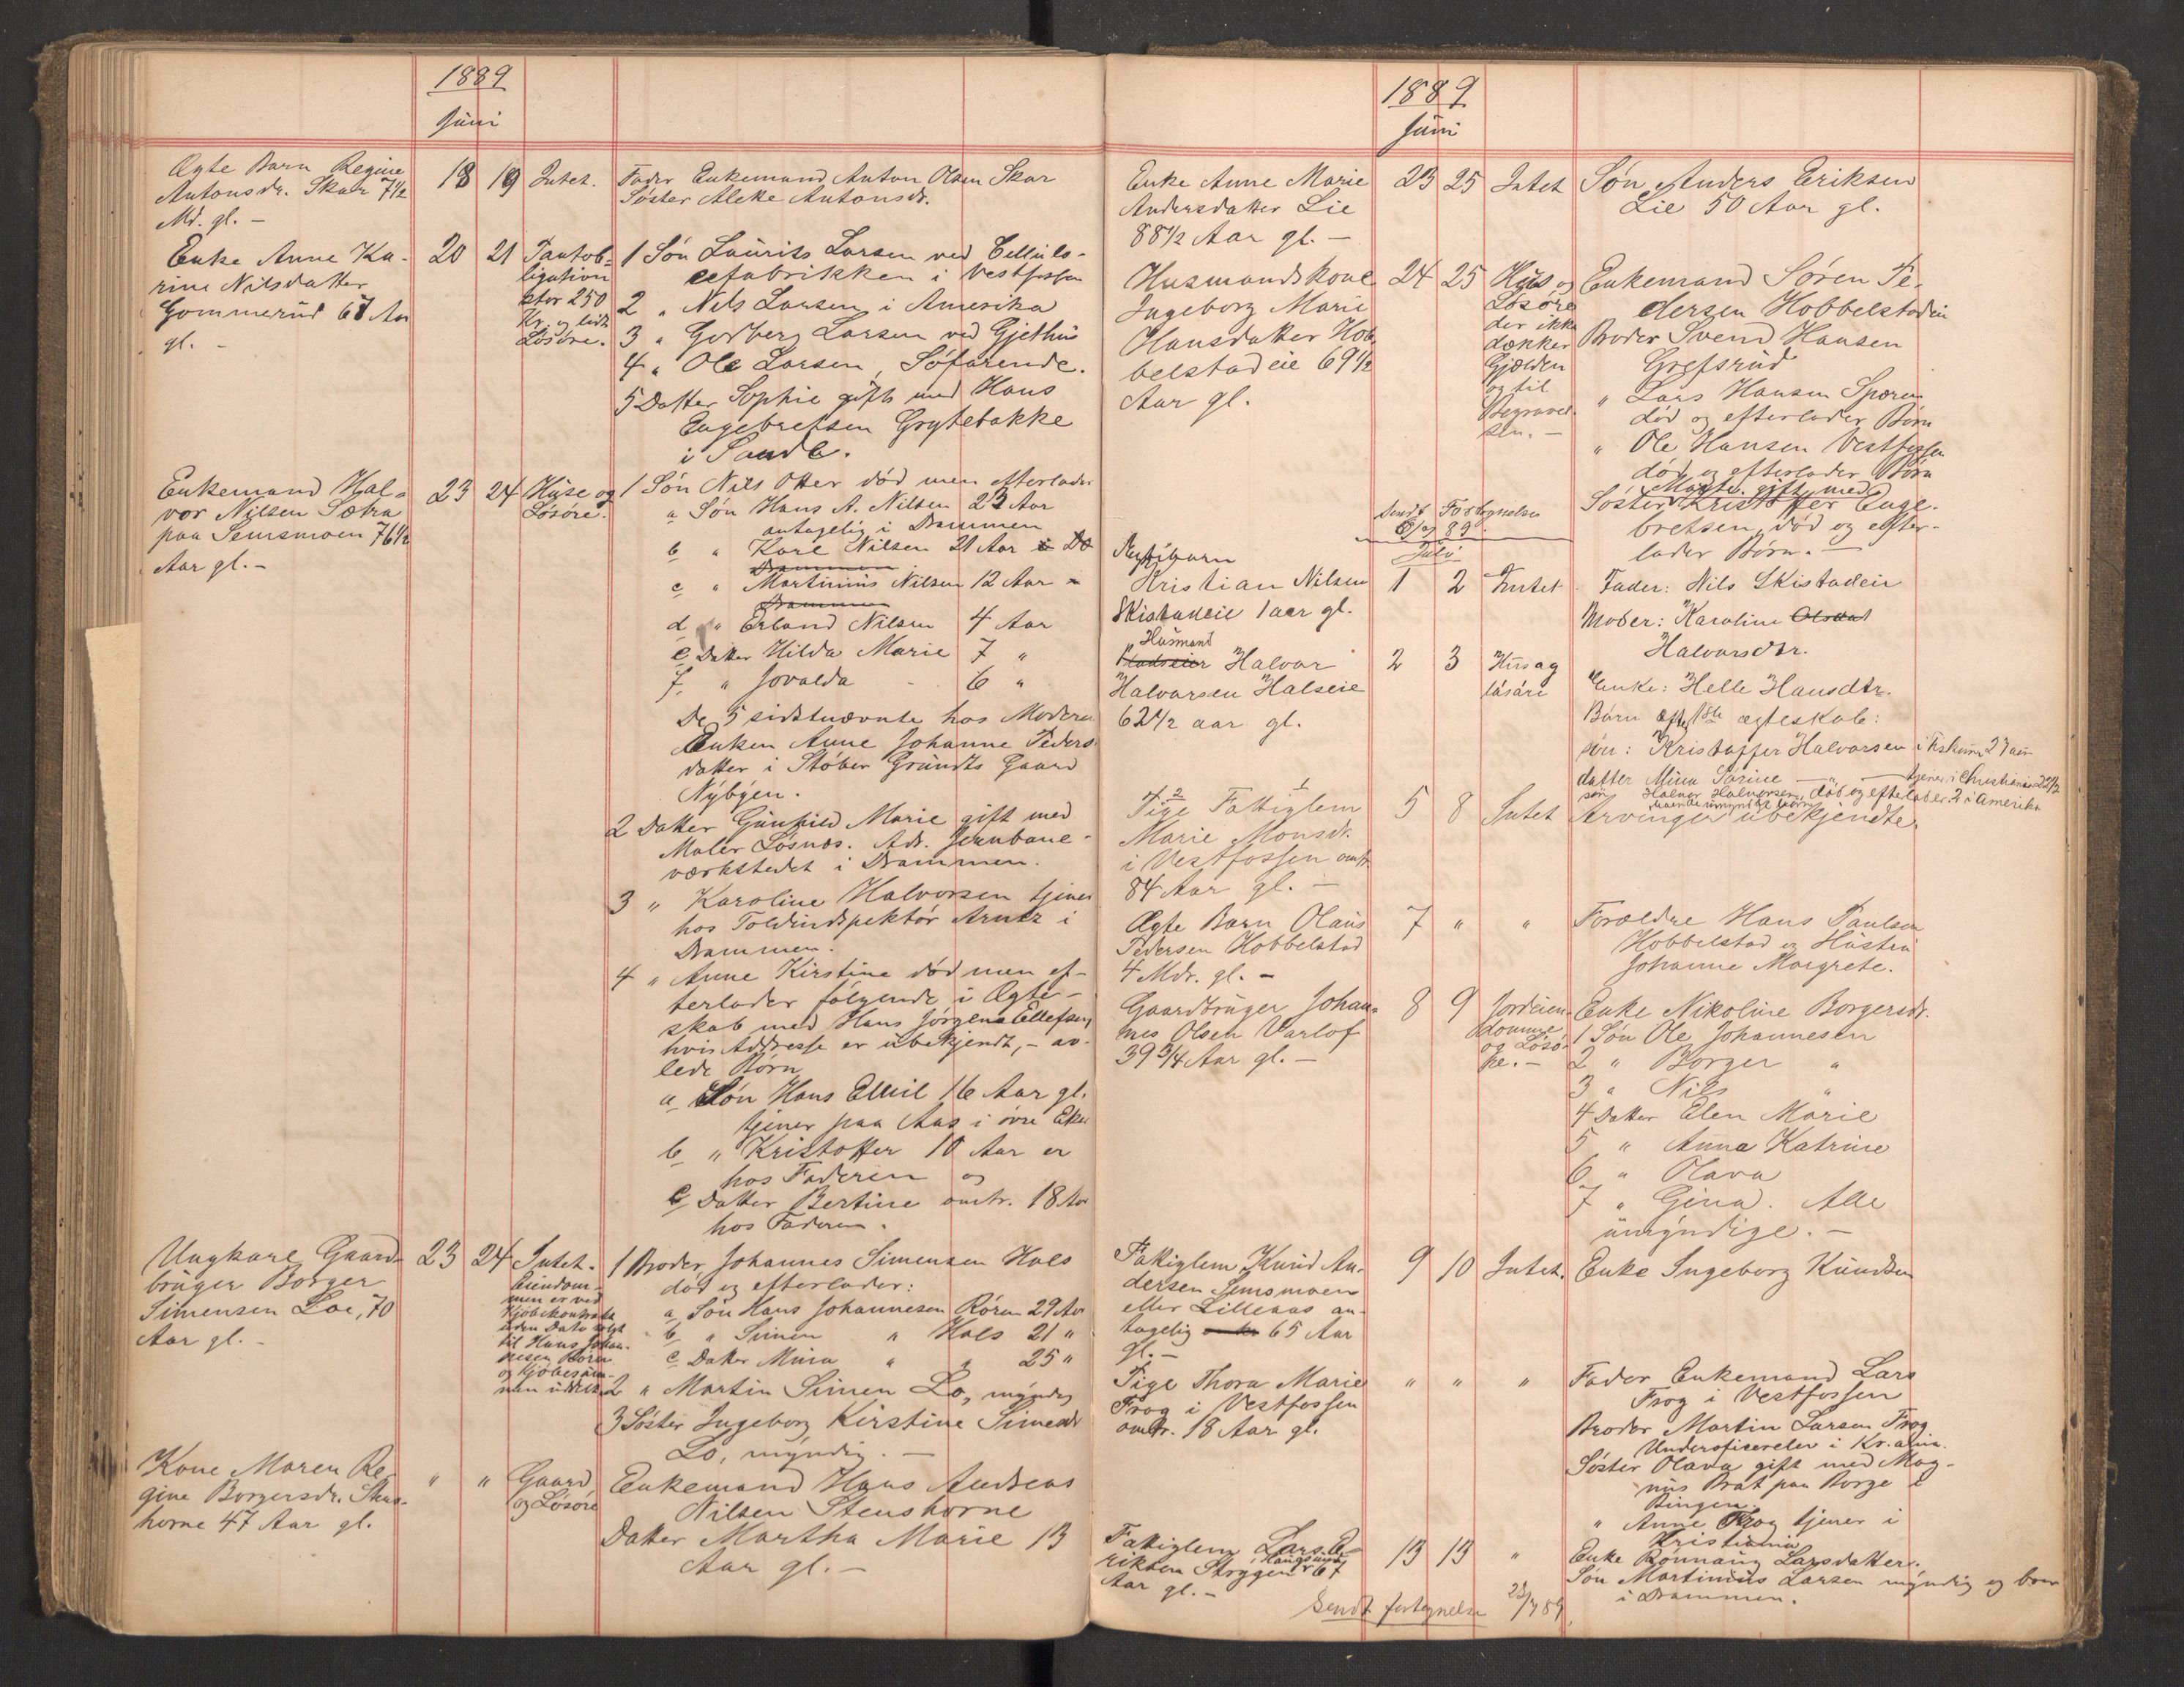 1889
Juni
Ægte Barn Regine
Antonsdr. Skar 7½
Md. gl. -
18 19 Intet.
Fader Enkemand Anton Olsen Skar
Søster Aleke Antonsdr.
Enke Anne Ka-
rine Nilsdatter
Gommerud 67 Aar
gl. -
20 21 Pantob-
ligation
stor 250
Kr. og lidt
Løsøre.
1 Søn Laurits Larsen ved Cellulo-
sefabrikken i Vestfossen
2 " Nils Larsen i Amerika
3 " Godberg Larsen ved Gjethus
4 " Ole Larsen, Søfarende.
5 Datter Sophie gift med Hans
Engebretsen Grytebakke
i Sande.
Enkemand Hal-
vor Nilsen Sætra
paa Semsmoen 76½
Aar gl. -
23 24 Huse og
Løsøre.
1 Søn Nils Otter død men efterlader
a Søn Hans A. Nilsen 23 Aar
antagelig i Drammen
b " Karl Nilsen 21 Aar i Do
Drammen
c " Martinius Nilsen 12 Aar -
Drammen
d " Erland Nilsen 4 Aar
e Datter Hilda Marie 7 "
f. " Jovalda - 6 "
De 5 sidstnævnte hos Moderen
Enken Anne Johanne Peders-
datter i Støber Grundts Gaard
Nybyen.
2 Datter Gunhild Marie gift med
Maler Løsnæs. Adr. Jernbane-
værkstedet i Drammen.
3 " Karoline Halvorsen tjener
hos Toldindspektør Arntz i
Drammen.
4 " Anne Kirstine død men ef-
terlader følgende i Ægte-
skab med Hans Jørgen Ellefsen,
hvis Addresse er ubekjendt, - av-
lede Børn
a Søn Hans Emil 16 Aar gl.
tjener paa Aas i øvre Eker
b " Kristoffer 10 Aar er
hos Faderen og
c Datter Bertine omtr. 18 Aar
hos Faderen.
Ungkarl Gaard-
bruger Borger
Simensen Loe, 70
Aar gl. -
23 24 Intet.
Eiendom-
men er ved
Kjøbekontrakt
uden Dato solgt
til Hans Johan-
nesen Røren
og Kjøbesum-
men uddelt
1 Broder Johannes Simensen Hals
død og efterlader:
a Søn Hans Johannesen Røren 29 Aar
b " Simen " Hals 21 "
c Datter Mina " " 25 "
2 " Martin Simen Lo, myndig
3 Søster Ingeborg Kirstine Simensdr
Lo, myndig. -
Kone Maren Re-
gine Borgersdr. Stens-
horne 47 Aar gl.
" " Gaard
og Løsøre
Enkemand Hans Andreas
Nilsen Stenshorne
Datter Martha Marie 13
Aar gl. -
1889
Juni
Enke Anne Marie
Andersdatter Lie
88½ Aar gl. -
23 25 Intet
Søn Anders Eriksen
Lie 50 Aar gl.
Husmandskone
Ingeborg Marie
Hansdatter Hob-
belstadeie 69½
Aar gl.
24 25 Hus og
Løsøre
der ikke
dækker
Gjælden
og til
Begravel-
sen. -
Enkemand Søren Pe-
dersen Hobbelstadeie
Broder Svend Hansen
Grefsrud
" Lars Hansen Speren
død og efterlader Børn
" Ole Hansen Vestfossen
død og efterlader Børn
Søster Magte. gift med
Kristoffer Enge-
bretsen, død og efter-
lader Børn. -
Sendt Fortegnelse
89.
Juli
Kristian Nilsen
Skistadeie 1 aar gl.
1 2 Intet
Fader: Nils Skistadeie
Moder: Karoline Olsdat
Halvorsdtr.
Husmand
Pladseier Halvor
Halvorsen Halseie
62½ aar gl.
2 3 Hus og
løsøre
Enke: Helle Hansdtr.
Børn efter 1ste ægteskab:
søn: Kristoffer Halvorsen i Fiskum 27 aar
datter Mina Sørine - " - tjener i Christiania 22½
søn Halvor Halvorsen, død og efterlader 2 i Amerika
boende umyndige børn
2 1
Pige Fattiglem
Marie Monsdr.
i Vestfossen omtr
84 Aar gl. -
5 8 Intet
Arvinger ubekjendte
Ægte Barn Olaus
Pedersen Hobbelstad
4 Mdr. gl. -
7 " "
Forældre Hans Paulsen
Hobbelstad og Hustru
Johanne Margrete.
Gaardbruger Johan-
nes Olsen Varlof
39 3/4 Aar gl. -
8 9 Jordeien-
domme
og Løsø-
re. -
Enke Nikoline Borgersdr.
1 Søn Ole Johannesen
2 " Borger "
3 " Nils "
4 Datter Elen Marie
5 " Anna Katrine
6 " Olava
7 " Gina. Alle
umyndige. -
Fattiglem Knud An-
dersen Semsmoen
eller Lilleaas an-
tagelig 65 Aar
gl. -
9 10 Intet.
Enke Ingeborg Knudsen
Pige Thora Marie
Frog i Vestfossen
omtr. 18 Aar gl.
" " "
Fader Enkemand Lars
Frog i Vestfossen
Broder Martin Larsen Frog
Underofficerelev i Kr.ania.
Søster Olava gift med Mag-
nus Brat paa Borge i
Bingen.
" Anne Frog tjener i
Kristiania
Fattiglem Lars E-
riksen Strygen i Haugsund 67
Aar gl. -
13 13 "
Enke Rønnaug Larsdatter.
Søn Martinius Larsen myndig og boer
i Drammen.
Sendt fortegnelse 23/7 89.